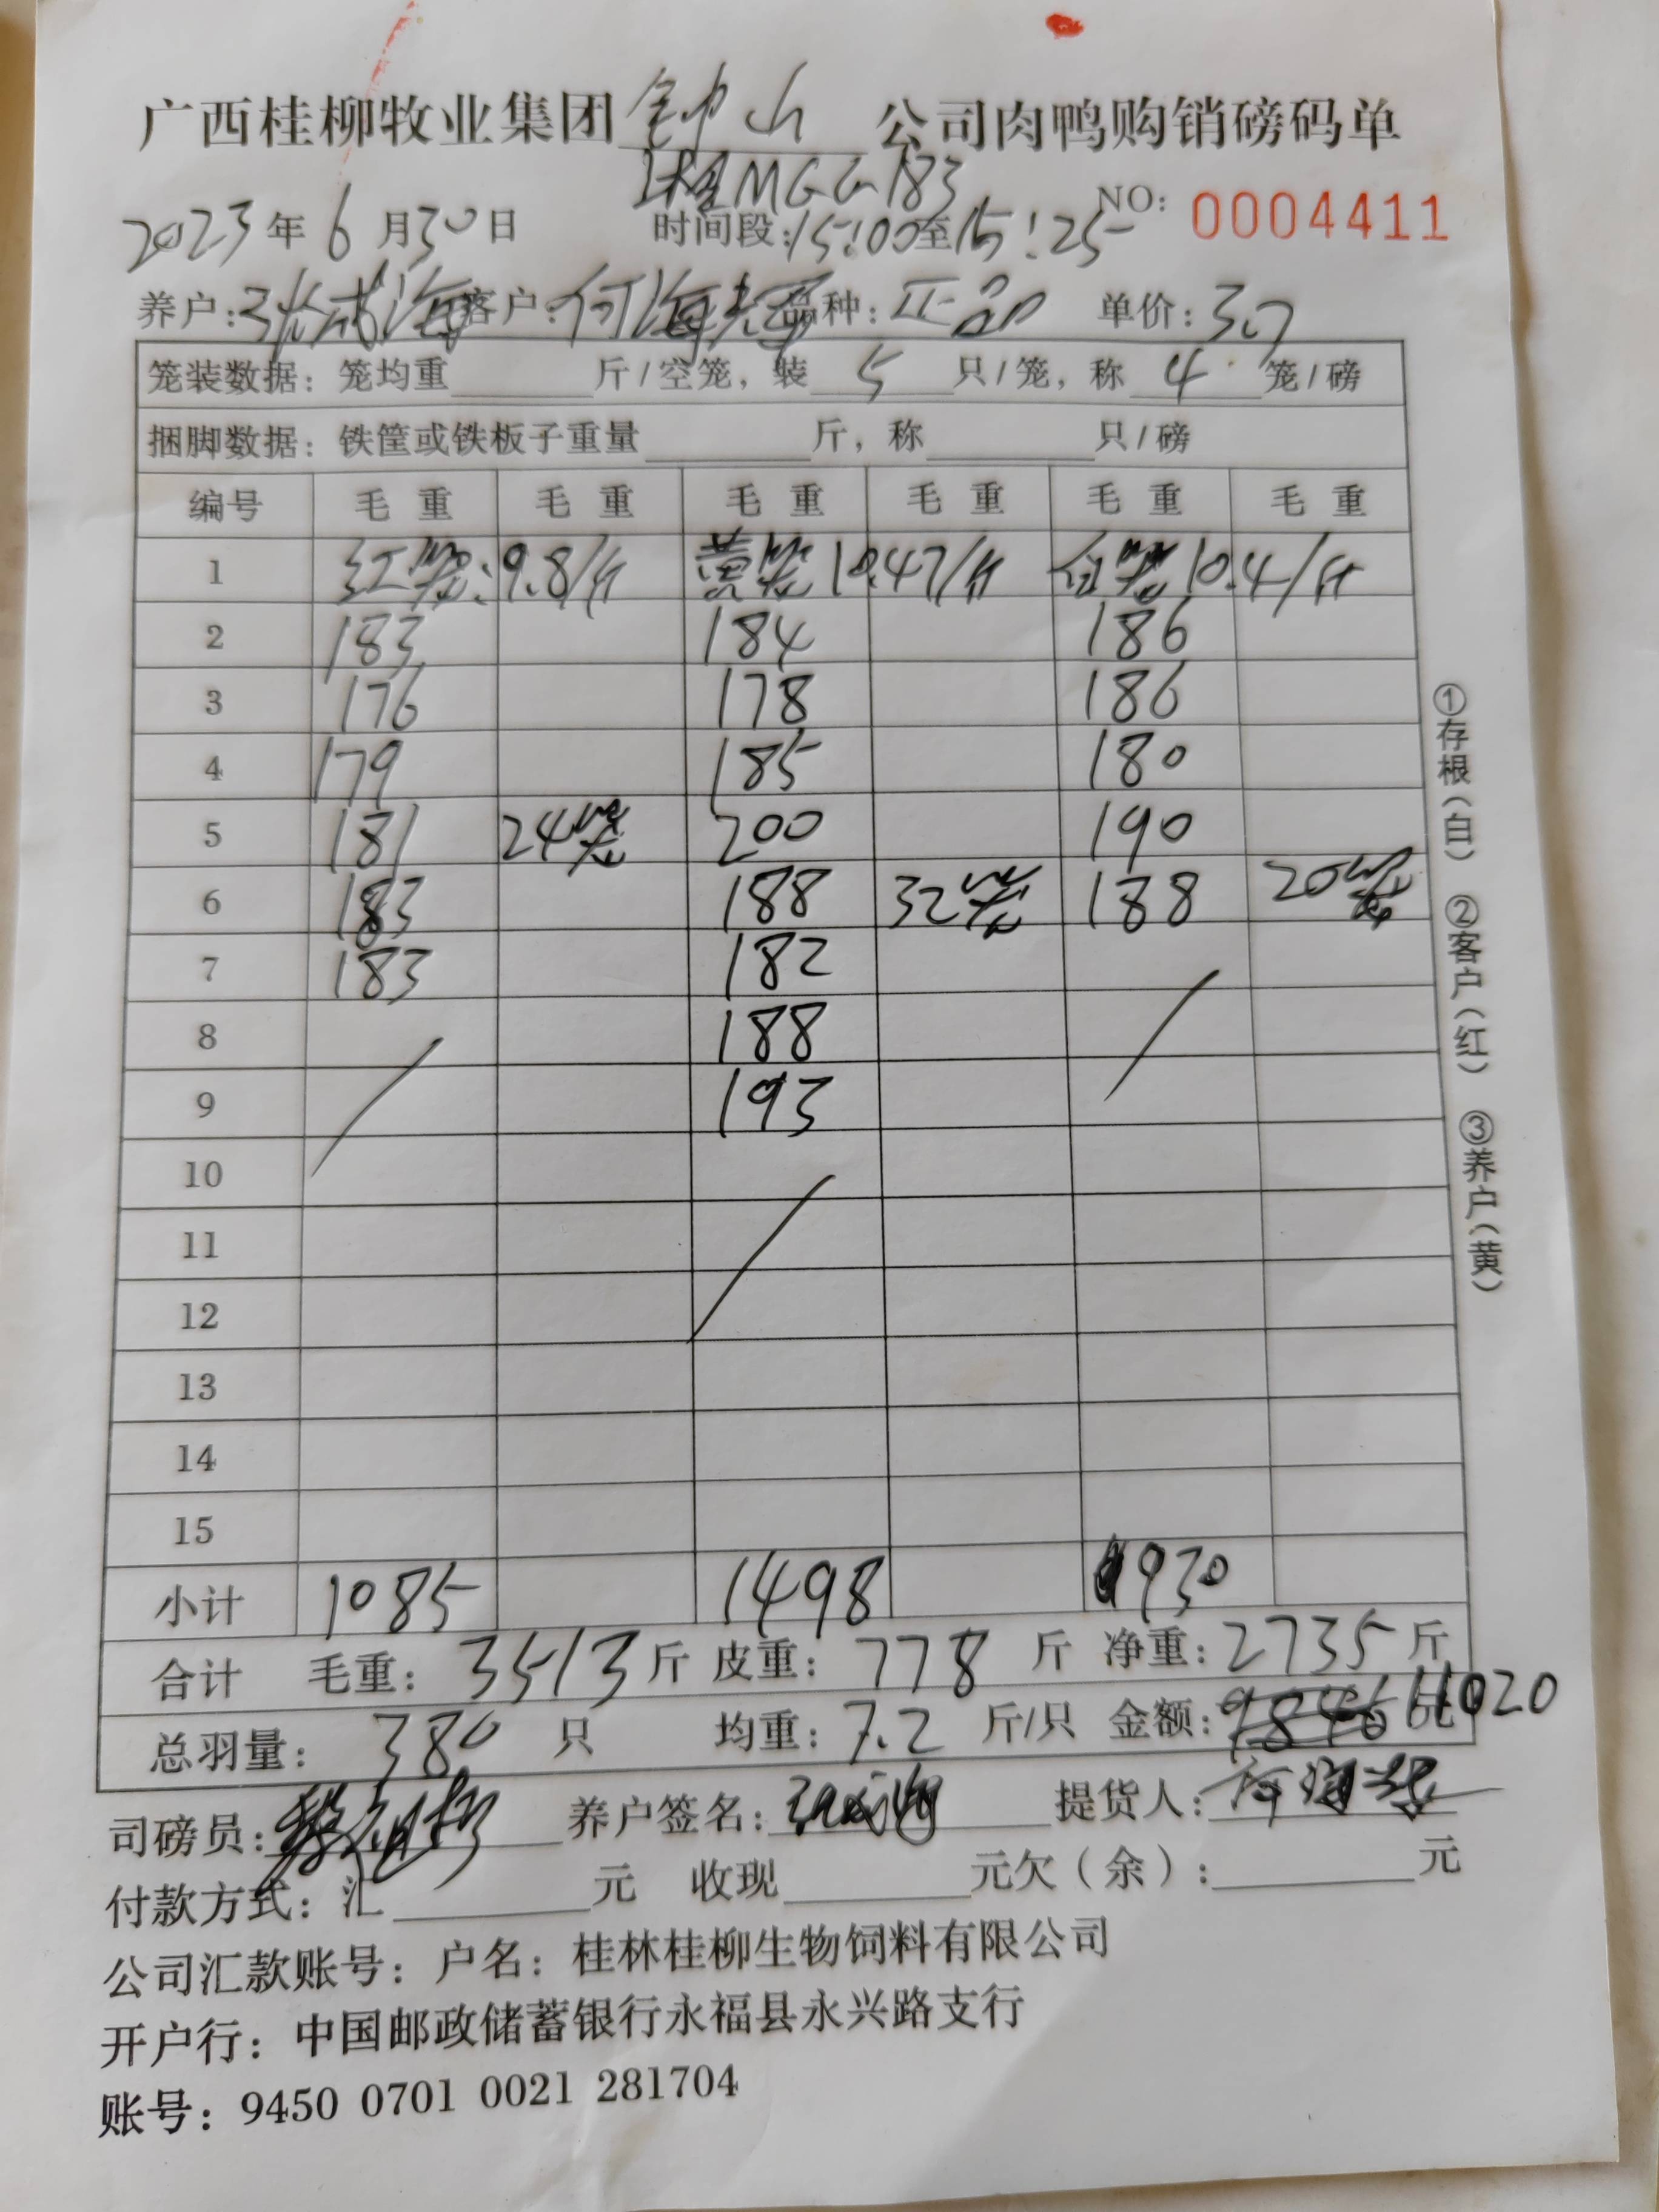 广西桂柳牧业集团钟山公司肉鸭购销磅码单
MGG183
2023年6月30日 时间段:15:00至15:25 NO: 0004411
养户:张成海 客户:何海 品种:正品 单价:3.7
笼装数据:笼均重 斤/空笼,装 5 只/笼,称 4 笼/磅
捆脚数据:铁筐或铁板子重量 斤,称 只/磅
编号 毛重 毛重 毛重 毛重 毛重 毛重
1 红笼:9.8/个 黄笼10.47/个 笼10.4/个
2 183 184 186
3 176 178 186
4 179 185 180
5 181 24笼 200 190
6 183 32笼 188 188 20笼
7 183 182
8 188
9 193
10
11
12
13
14
15
小计 1085 1498 930
合计 毛重:3513斤 皮重:778斤 净重:2735斤
总羽量:380只 均重:7.2斤/只 金额:9846 11020
司磅员: 养户签名:张成海 提货人:何海
付款方式:汇 元 收现 元欠(余): 元
公司汇款账号:户名:桂林桂柳生物饲料有限公司
开户行:中国邮政储蓄银行永福县永兴路支行
账号:9450 0701 0021 281704
①存根(白) ②客户(红) ③养户(黄)